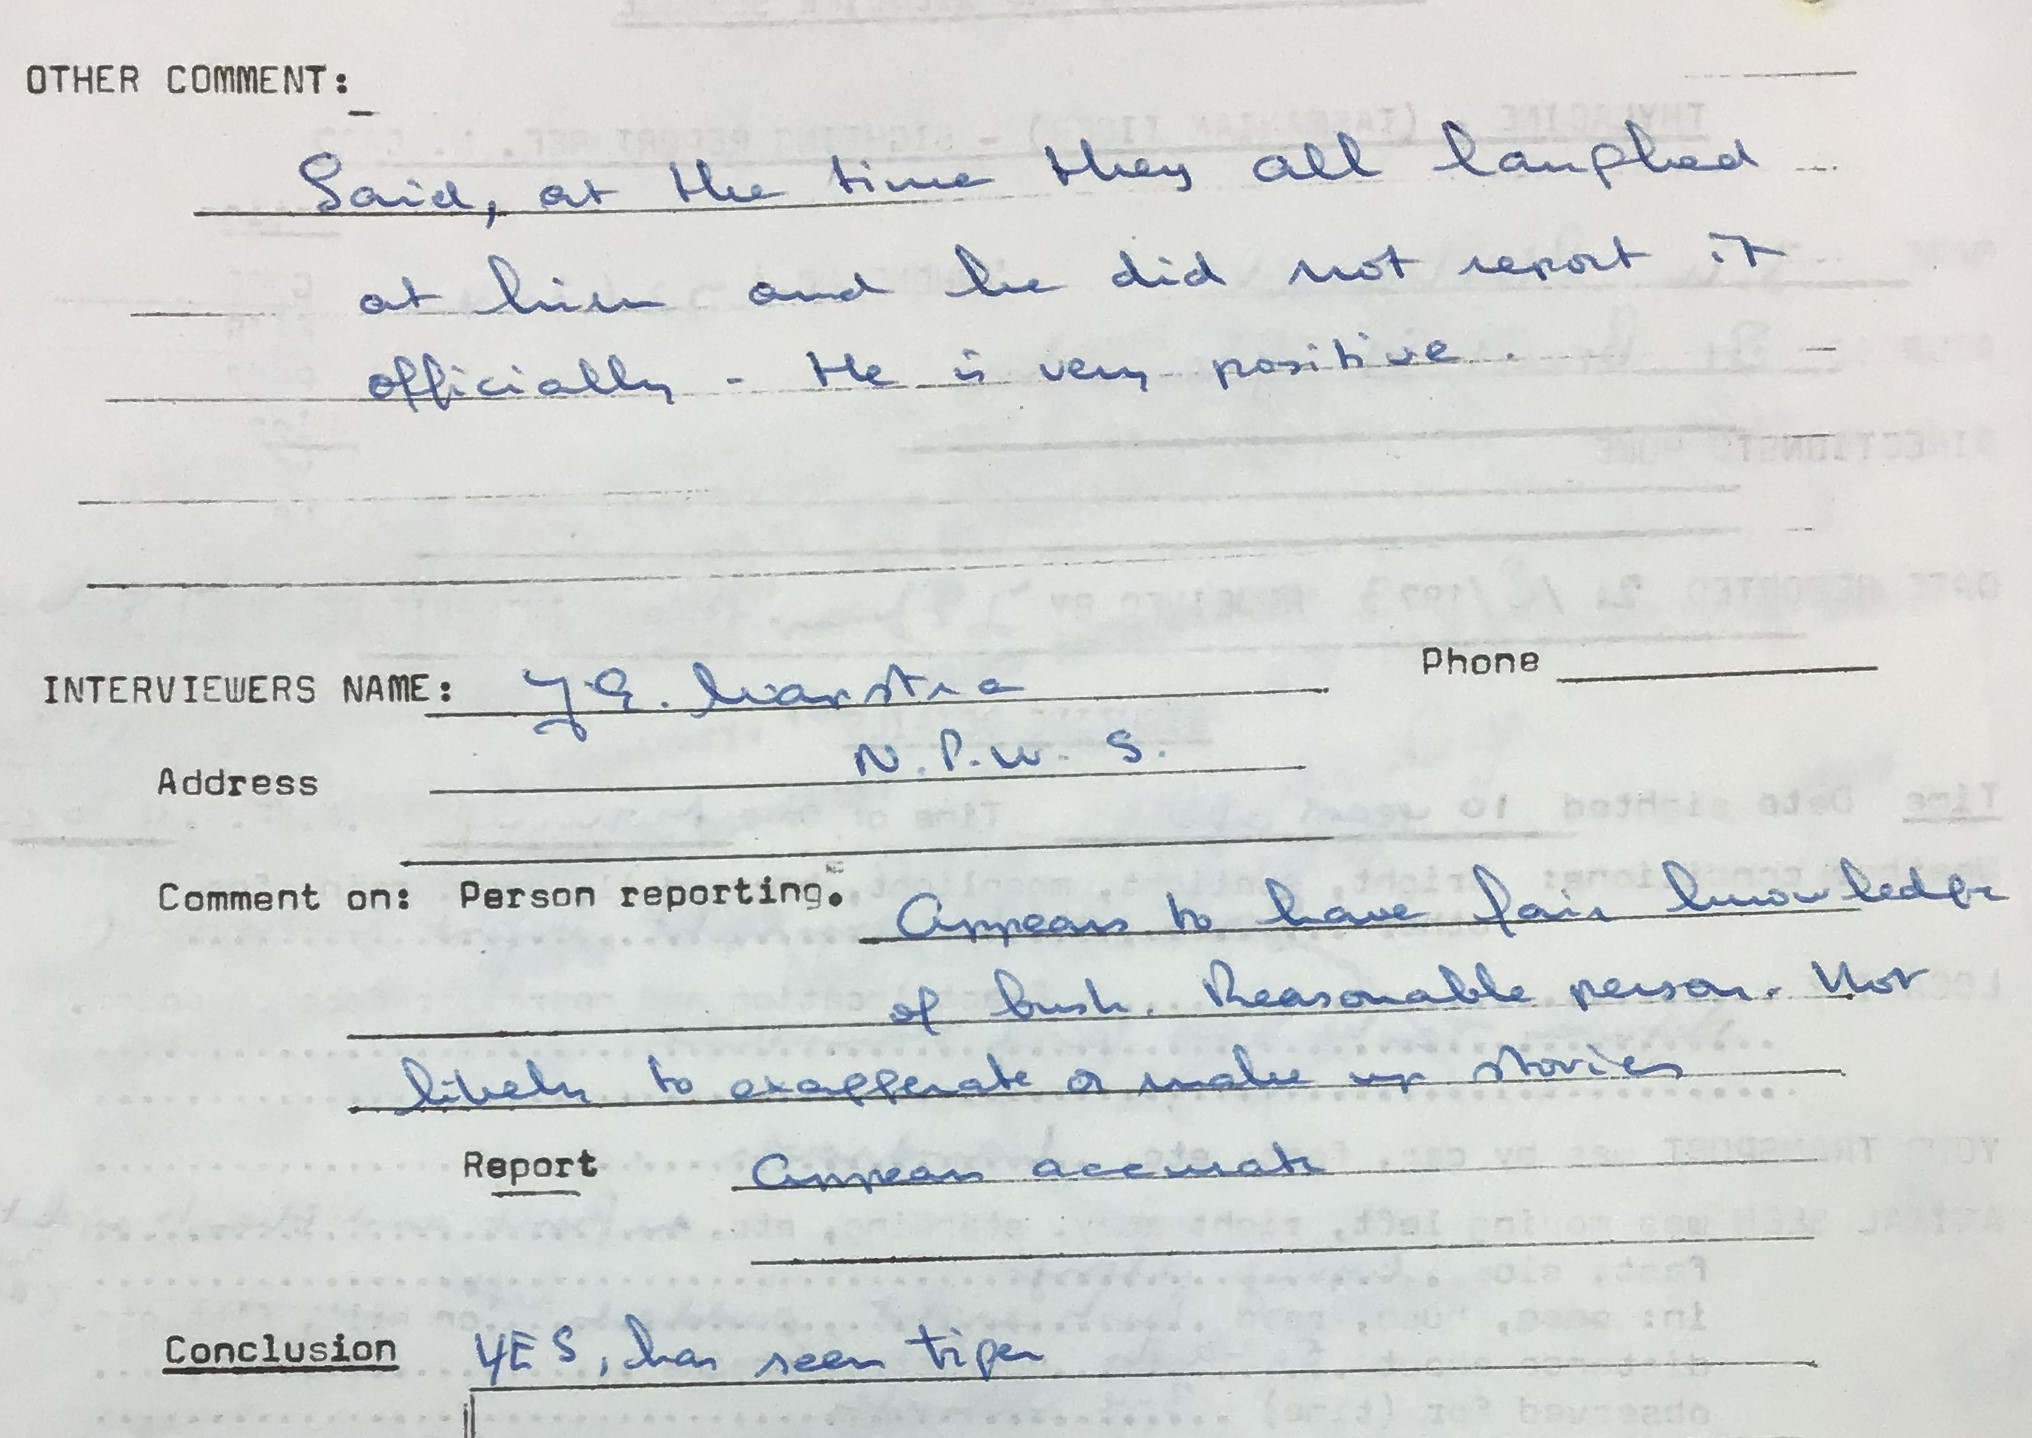 OTHER COMMENT:
Said, at the time they all laughed
at him and he did not report it
officially - He is very positive.
INTERVIEWERS NAME:
Phone
Address N.P.W.S.
Comment on: Person reporting. Appears to have fair knowledge
of bush. Reasonable person. Not
likely to exaggerate or make up stories
Report Appears accurate
Conclusion YES, has seen tiger